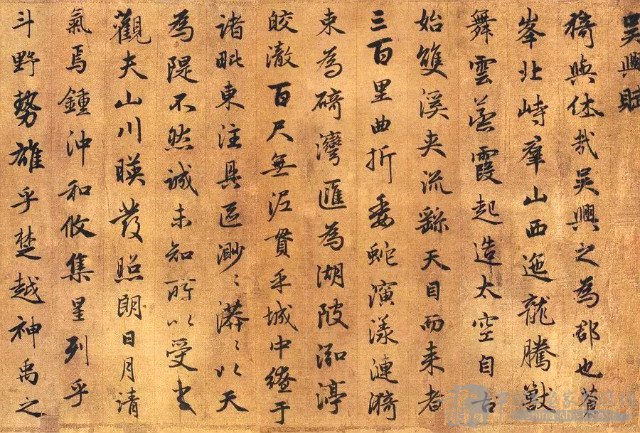 吴興賦
猗與休哉吴興之為郡也蒼
峯北峙羣山西迤龍騰獸
舞雲蒸霞起造太空自古
始雙溪夾流繇天目而来者
三百里曲折委蛇演漾漣漪
束為碕灣匯為湖陂泓渟
皎澈百尺無泥貫乎城中繚于
諸毗東注具區渺〻漭〻以天
為隄不然誠未知所以受之
觀夫山川暎發照朗日月清
氣焉鍾沖和攸集星列乎
斗野勢雄乎楚越神禹之